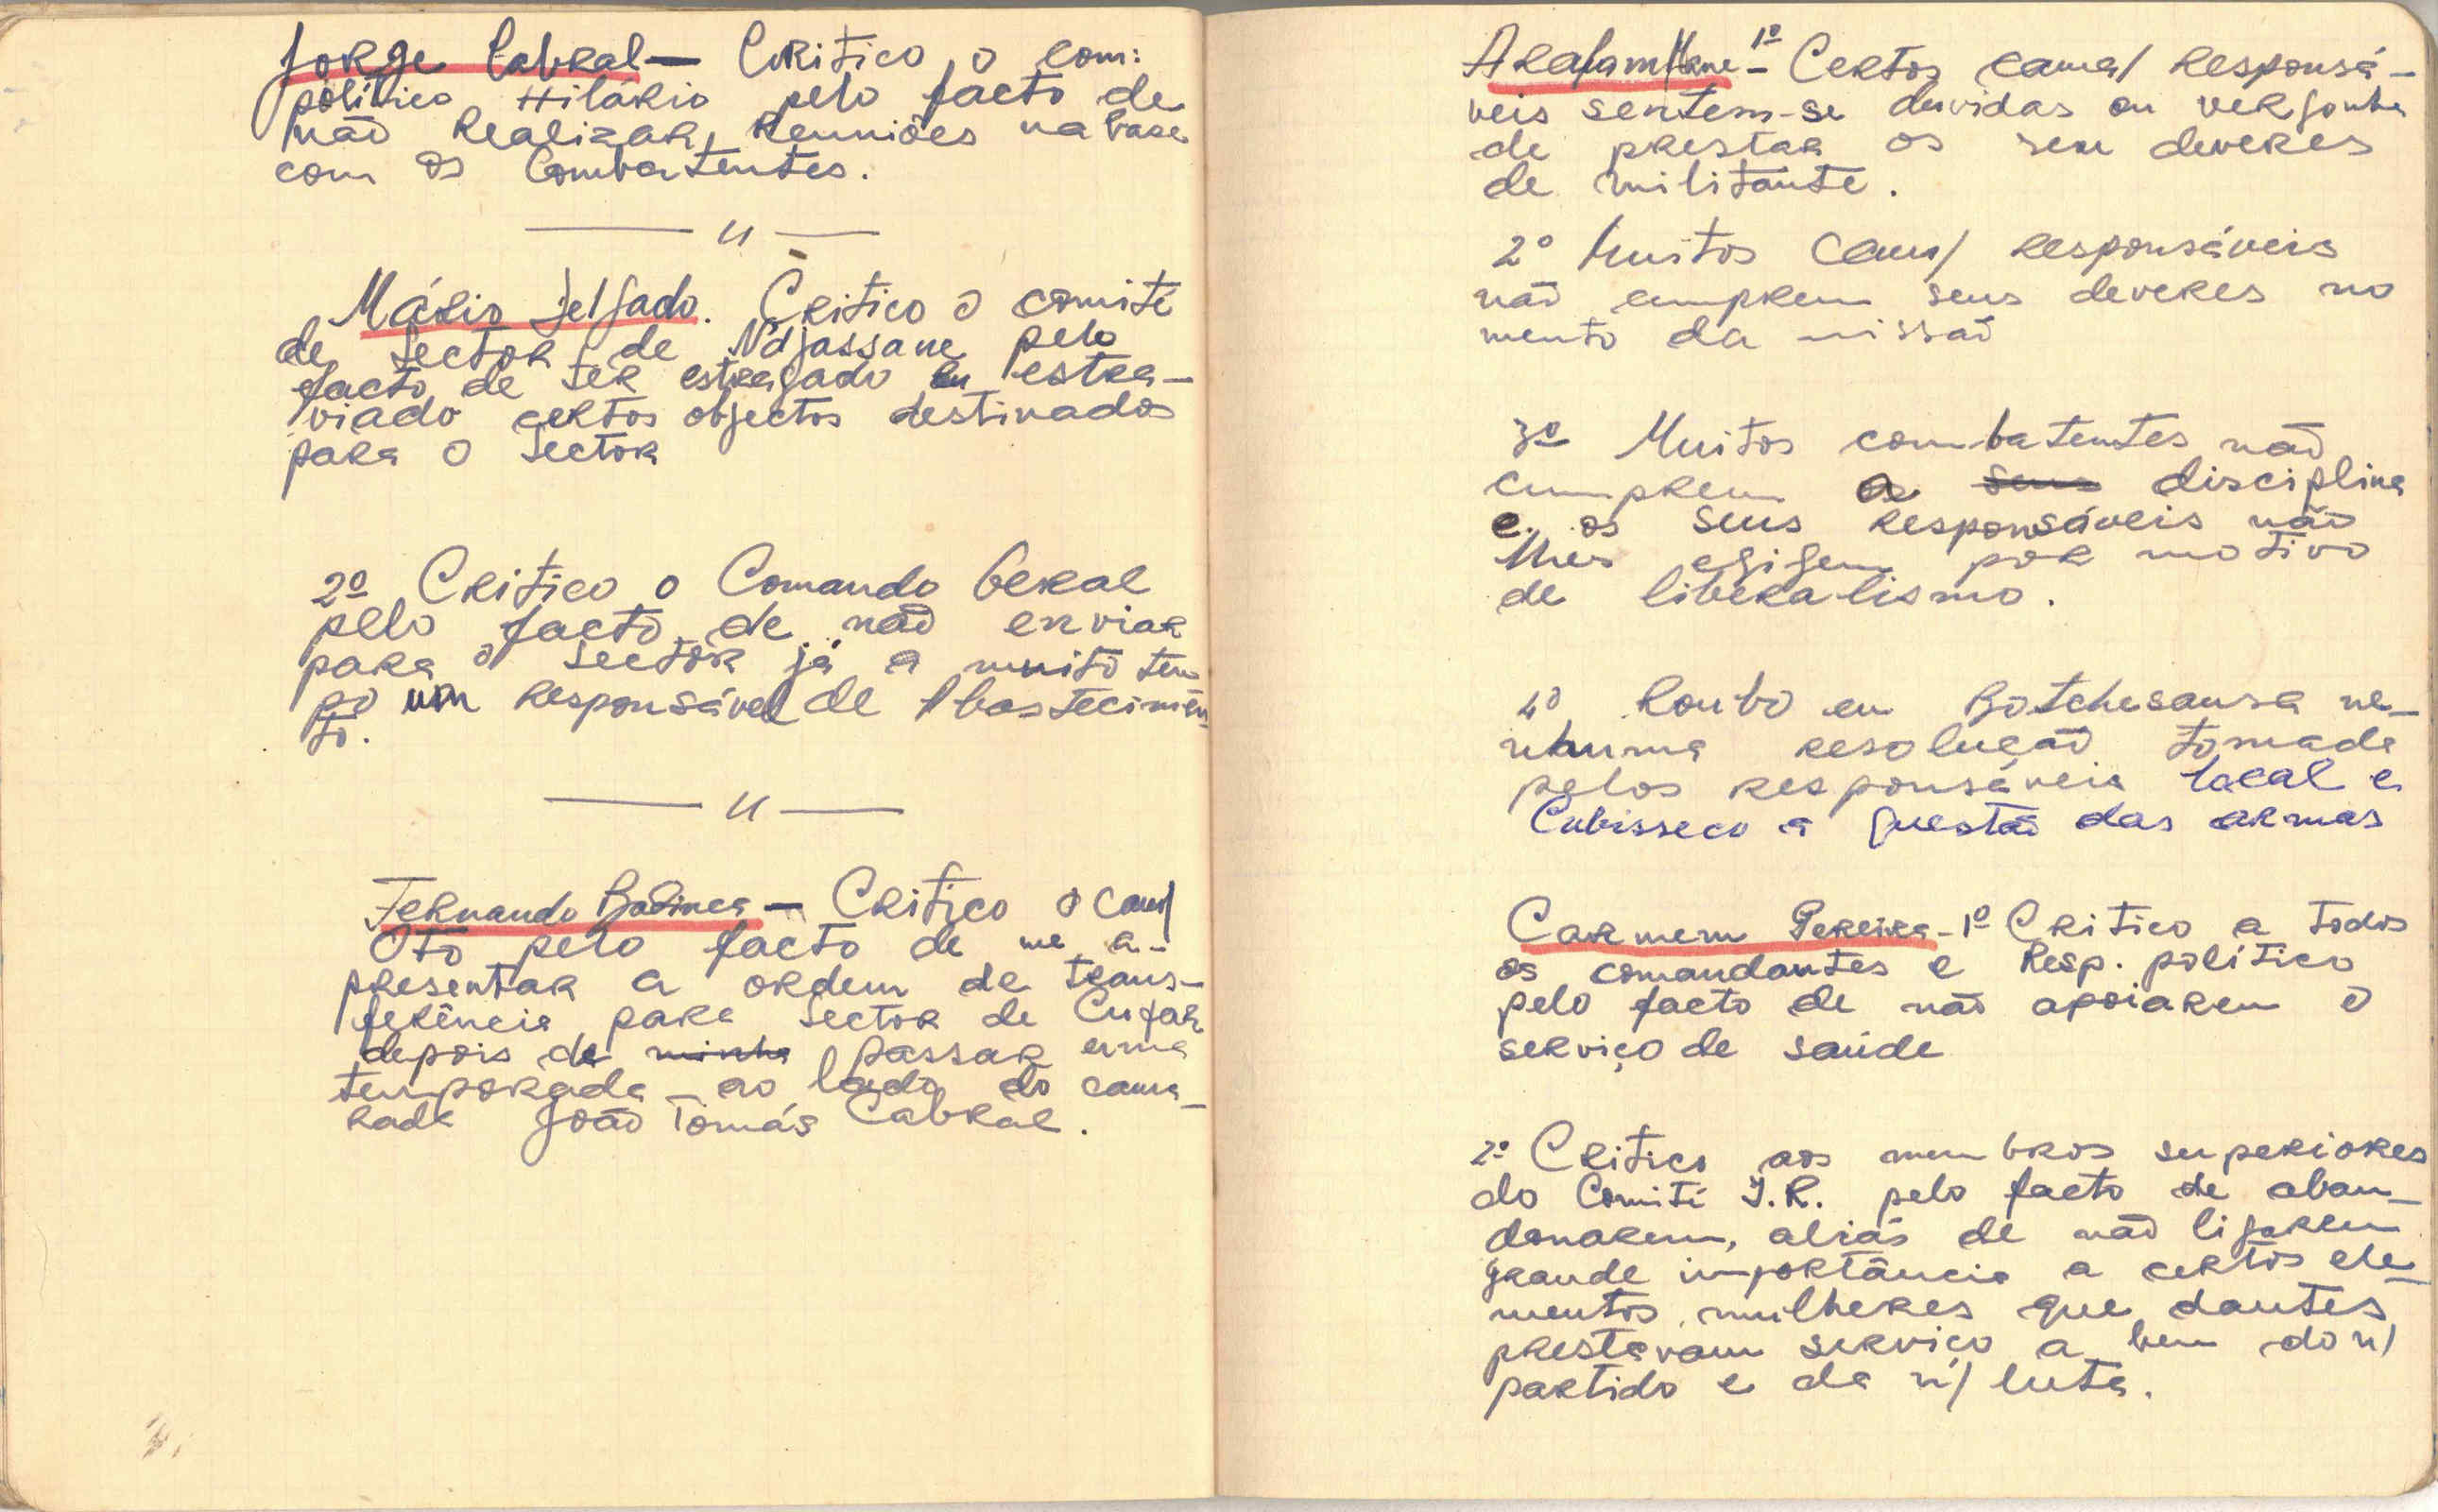 Jorge Cabral — Critico o com:
político Hilário pelo facto de
não realizar reuniões na base
com os Combatentes.
— " —
Mário Delgado. Critico o comité
de Sector de N'djassane pelo
facto de ter estragado ou estra-
viado certos objectos destinados
para o Sector
2º Critico o Comando Geral
pelo facto de não enviar
para o Sector já a muito tem
po um responsável de Abastecimen
to.
— " —
Fernando Badinca — Critico o cam/
Otto pelo facto de me a-
presentar a ordem de trans-
ferência para Sector de Cufar
depois de minha passar uma
temporada ao lado do cama-
rada João Tomás Cabral.
Arafam Mane - 1º Certos cama/ responsá-
veis sentem-se duvidas ou vergonha
de prestar os seu deveres
de militante.
2º Muitos Cam/ responsáveis
não cumprem seus deveres no
mento da missão
3º Muitos combatentes não
cumprem a seus disciplina
e os seus responsáveis não
lhes egigem por motivo
de liberalismo.
4º Roubo em Botchesansa ne-
nhuma resolução tomada
pelos responsáveis local e
Cubisseco a questão das armas
Carmem Pereira - 1º Critico a todos
os comandantes e Resp. político
pelo facto de não apoiarem o
serviço de saúde
2º Critico aos membros superiores
do Comité I.R. pelo facto de aban-
donarem, aliás de não ligarem
grande importância a certos ele-
mentos mulheres que dantes
prestavam serviço a bem do n/
partido e da n/ luta.